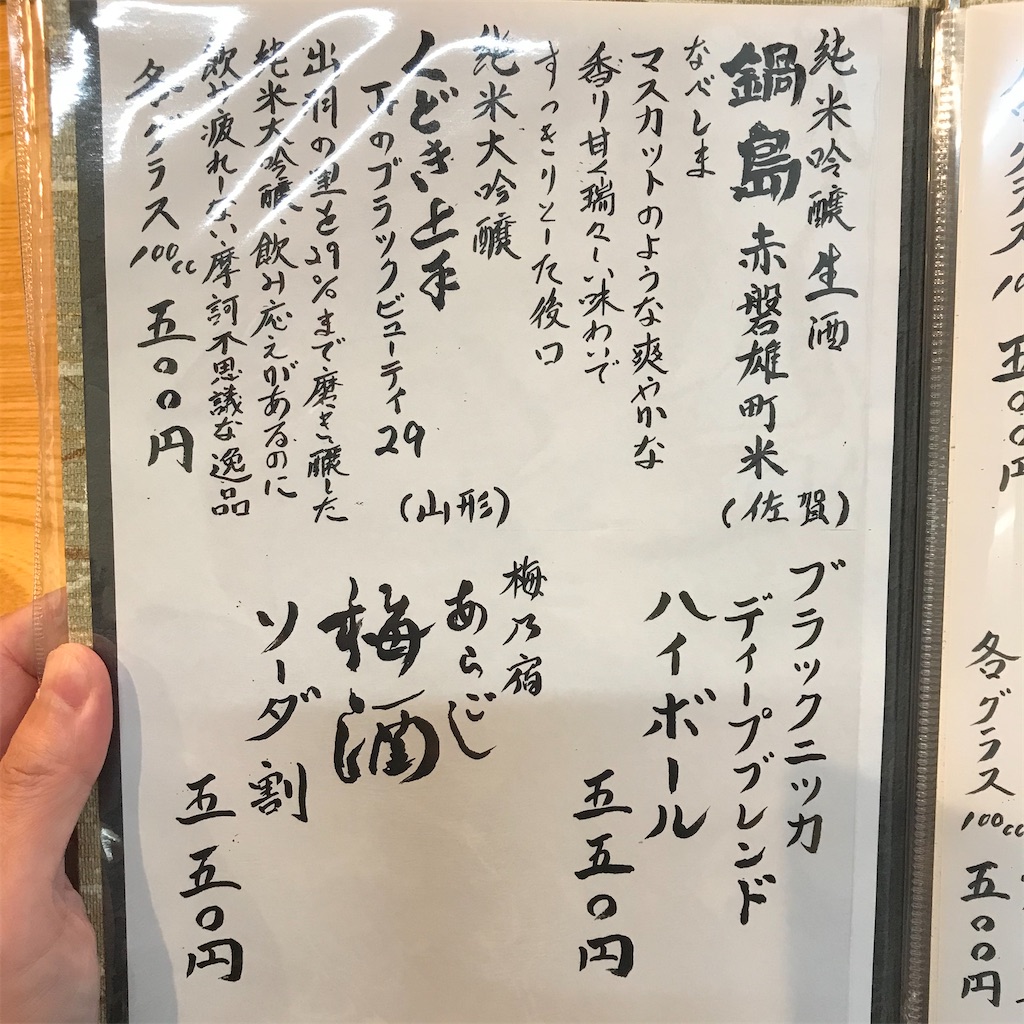 純米吟醸生酒
鍋島 赤磐雄町米
(佐賀)
なべしま
マスカットのような爽やかな
香り甘く瑞々しい味わいで
すっきりとした後口
純米大吟醸
くどき上手
Jrのブラックビューティ29
(山形)
出羽の里を29%まで磨き醸した
純米大吟醸、飲み応えがあるのに
飲み疲れしない摩訶不思議な逸品
各グラス100cc 五〇〇円
ブラックニッカ
ディープブレンド
ハイボール
五五〇円
梅乃宿
あらごし
梅酒
ソーダ割
五五〇円
五〇〇円
各グラス100cc 五〇〇円